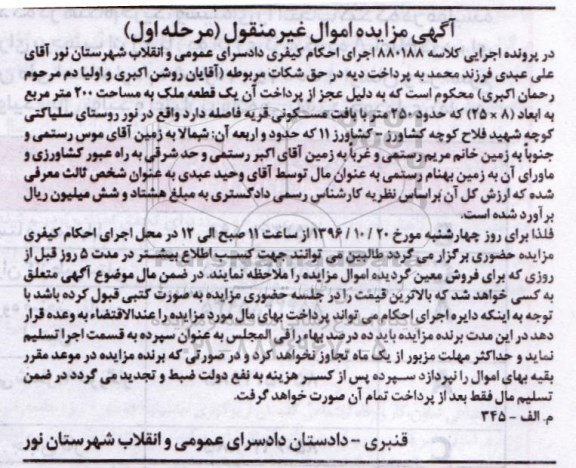 آگهی مزایده اموال غیر منقول (مرحله اول)
در پرونده اجرایی کلاسه ۸۸۰۱۸۸ اجرای احکام کیفری دادسرای عمومی و انقلاب شهرستان نور آقای
علی عبدی فرزند محمد به پرداخت دیه در حق شکات مربوطه (آقایان روشن اکبری و اولیا دم مرحوم
رحمان اکبری) محکوم است که به دلیل عجز از پرداخت آن یک قطعه ملک به مساحت ۲۰۰ متر مربع
به ابعاد (۸ × ۲۵) که حدود متر و با بافت مسکونی قریه فاصله دارد واقع در نور روستای سلیاکتی
کوچه شهید فلاح کوچه کشاورز - کشاورز ۱۱ که حدود اربعه آن: شمالا به زمین آقای موس رستمی و
جنوباً به زمین خانم مریم رستمی و غرباً به زمین آقای اکبر رستمی و حد شرقی به راه عبور کشاورزی و
ماورای آن به زمین بهنام رستمی به عنوان مال توسط آقای وحید عبدی به عنوان شخص ثالث معرفی
شده که ارزش کل آن براساس نظریه کارشناس رسمی دادگستری به مبلغ هشتاد و شش میلیون ریال
برآورد شده است.
فلذا برای روز چهارشنبه مورخ ۲۰ / ۱۰ / ۱۳۹۶ از ساعت ۱۱ صبح الی ۱۲ در محل اجرای احکام کیفری
مزایده حضوری برگزار می گردد طالبین می توانند جهت کسب اطلاع بیشتر در مدت ۵ روز قبل از
روزی که برای فروش معین گردیده اموال مزایده را ملاحظه نمایند. در ضمن مال موضوع آگهی متعلق
به کسی خواهد شد که بالاترین قیمت را در جلسه حضوری مزایده به صورت کتبی قبول کرده باشد با
توجه به اینکه دایره اجرای احکام می تواند پرداخت بهای مال مورد مزایده را عندالاقتضاء به وعده قرار
دهد در این مدت برنده مزایده باید ده درصد بهاء را فی المجلس به عنوان سپرده به قسمت اجرا تسلیم
نماید و حداکثر مهلت مزبور از یک ماه تجاوز نخواهد کرد و در صورتی که برنده مزایده در موعد مقرر
بقیه بهای اموال را نپردازد سپرده پس از کسر هزینه به نفع دولت ضبط و تجدید می گردد در ضمن
تسلیم مال فقط بعد از پرداخت تمام آن صورت خواهد گرفت.
م. الف - ۳۴۵
قنبری - دادستان دادسرای عمومی و انقلاب شهرستان نور